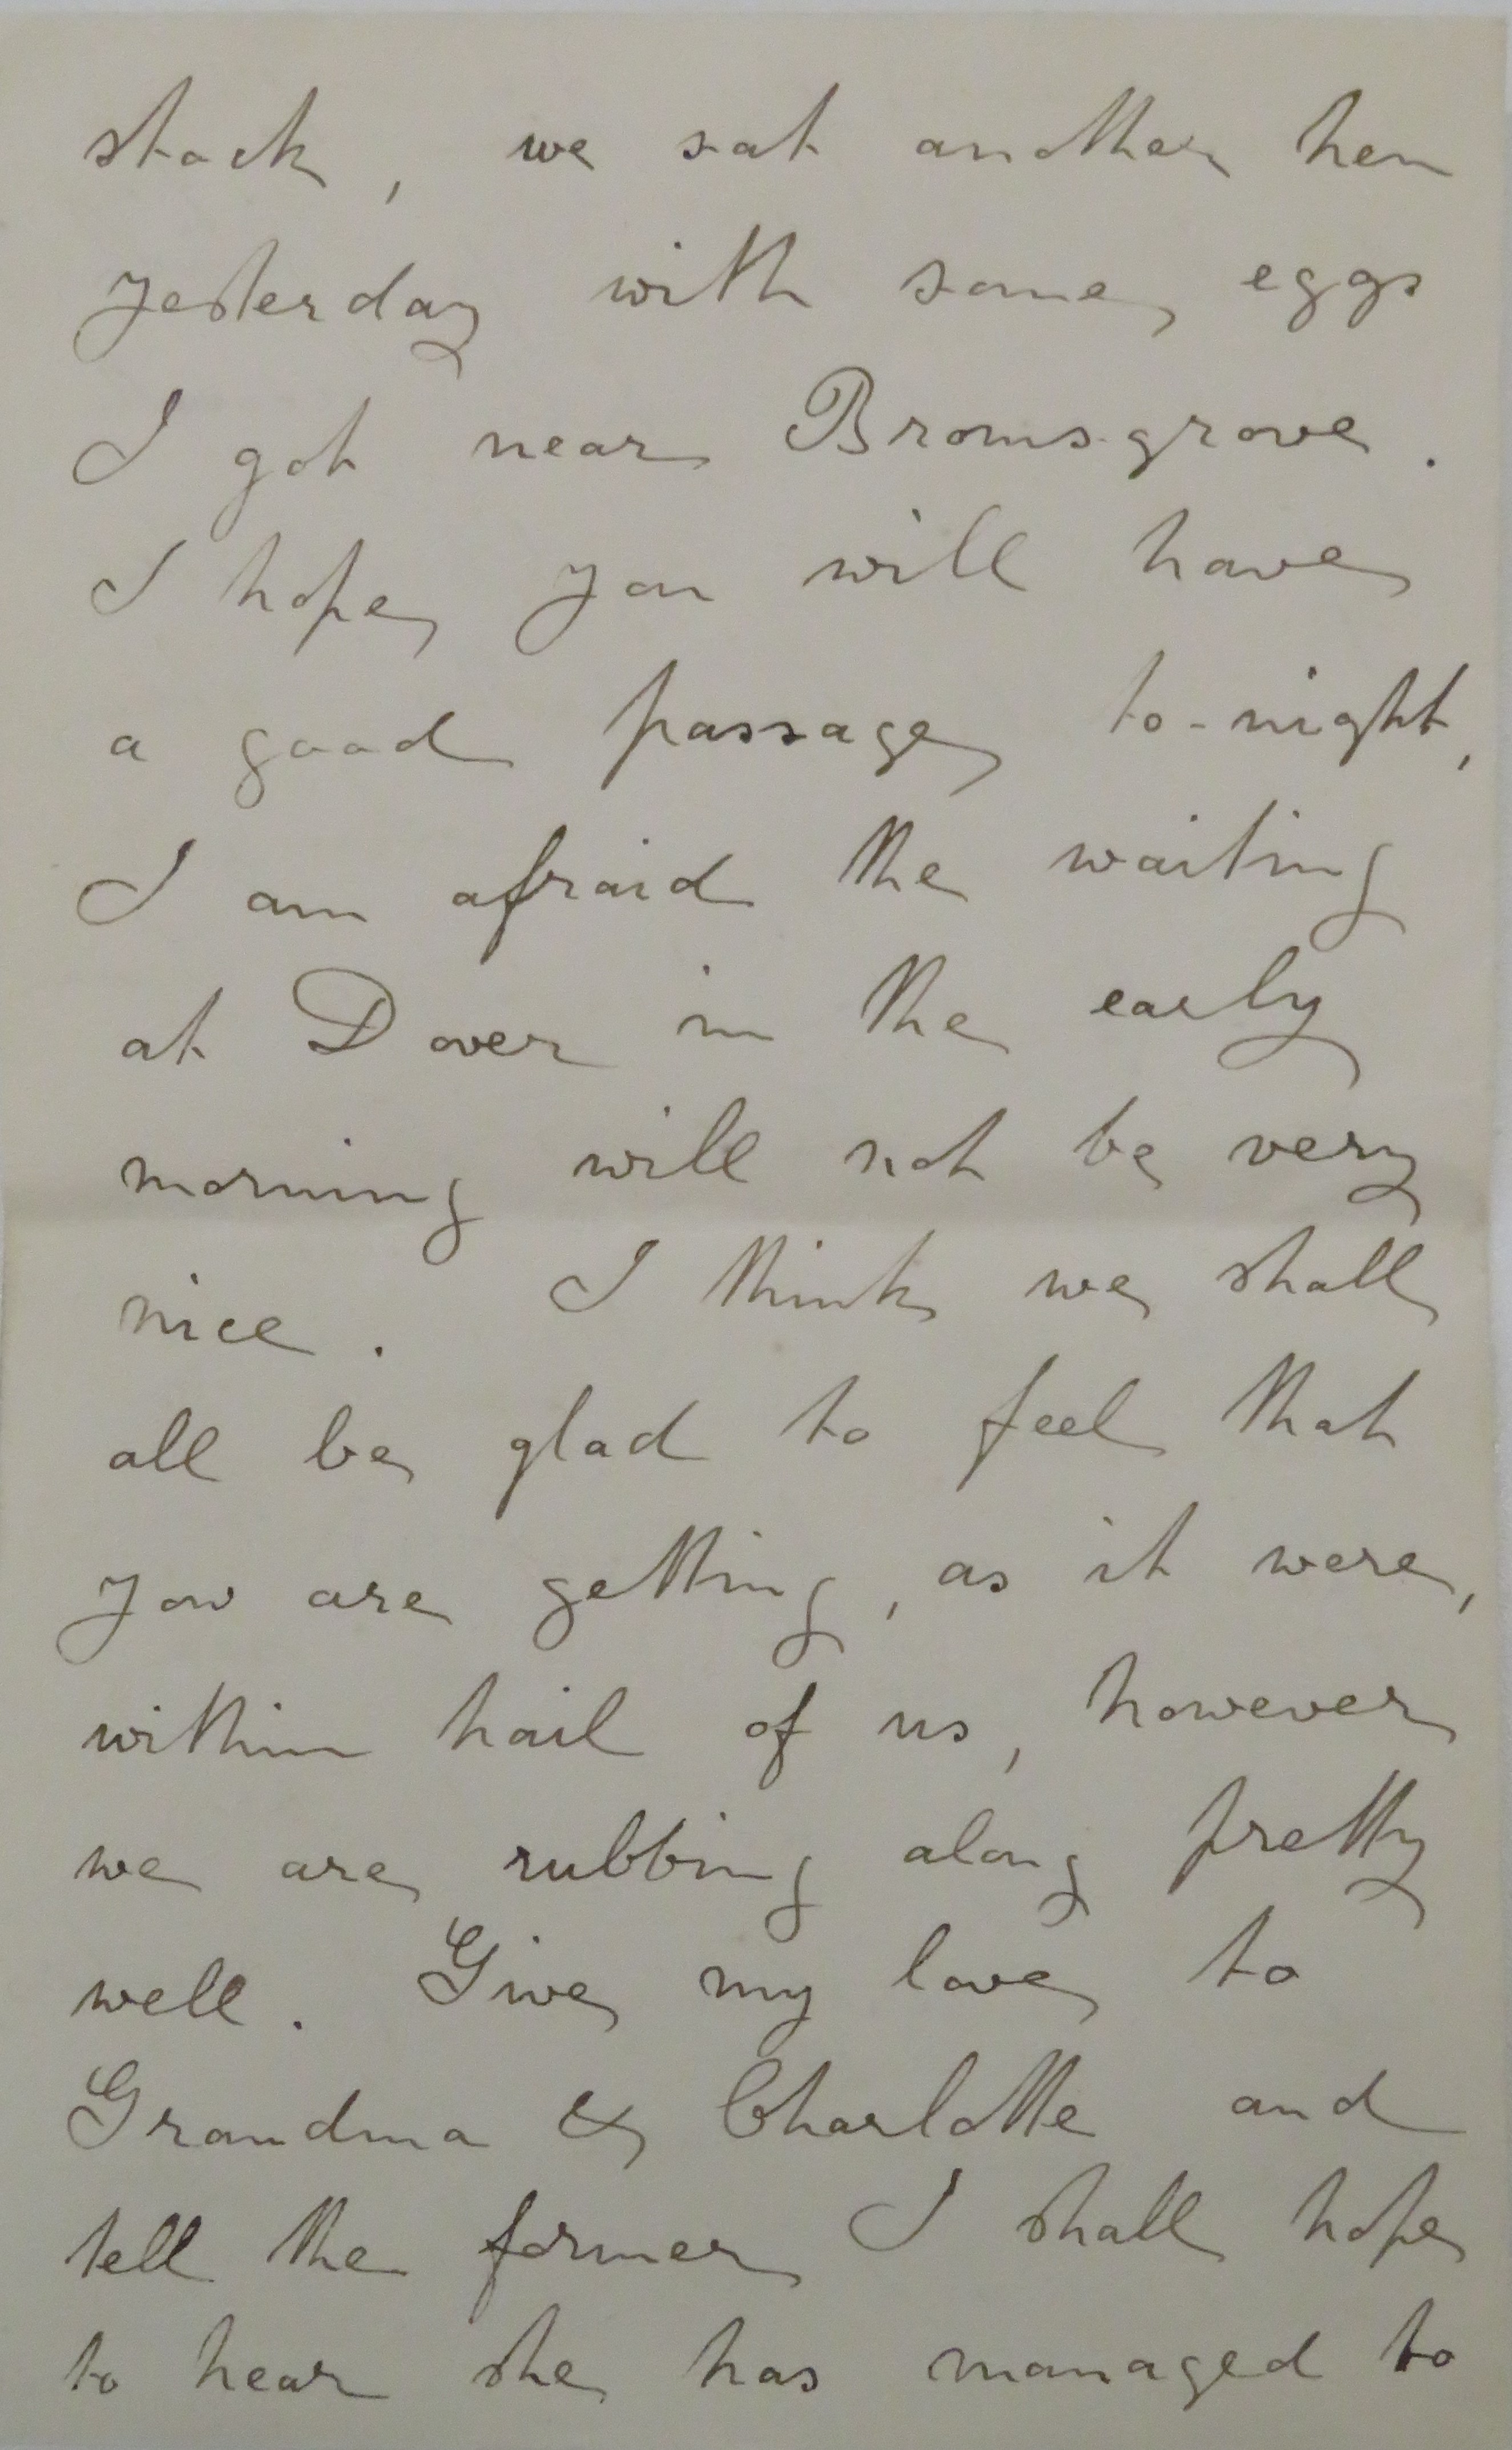 stock, we sat another hen
yesterday with some eggs
I got near Bromsgrove.
I hope you will have
a good passage to-night,
I am afraid the waiting
at Dover in the early
morning will not be very
nice. I think we shall
all be glad to feel that
you are getting, as it were,
within hail of us, however
we are rubbing along pretty
well. Give my love to
Grandma & Charlotte and
tell the former I shall hope
to hear she has managed to